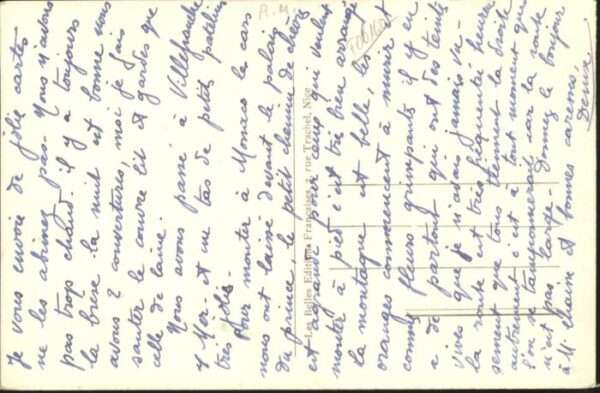 Je vous envoie de jolie cartes
ne les abimez pas. Nous n'avons
pas trop chaud. il y a toujours
la brise la nuit est bonne nous
avons 2 couvertures, moi je fais
sauter le couvre lit et gardes que
celle de laine.
Nous avons passé à Villefranche
s/ Mer. et un tas de petits patelins
très jolis.
Pour monter à Monaco le cars
nous ont laissé devant le palais
du prince le petit chemin de chèvres
est réparé pour ceux qui veulent
monter à pied c'est très bien arrangé
la montagne est belle, les
oranges commencent à murir et
comme fleurs grimpants il y en
a de partout qui ont des teintes
vives que je n'avais jamais vu
la route est très fréquentée heureu
sement que tous tiennent la droite
autrement c'est à tout moment que
l'on se tamponnerait car la route
n'est pas large. Donnez le bonjour
à M. et bonnes caresses
Denise
Les Belles Editions Françaises, rue Trachel, Nice